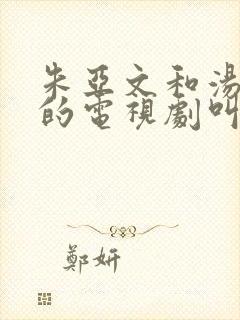 朱亞文和湯
的電視劇叫
鄭妍